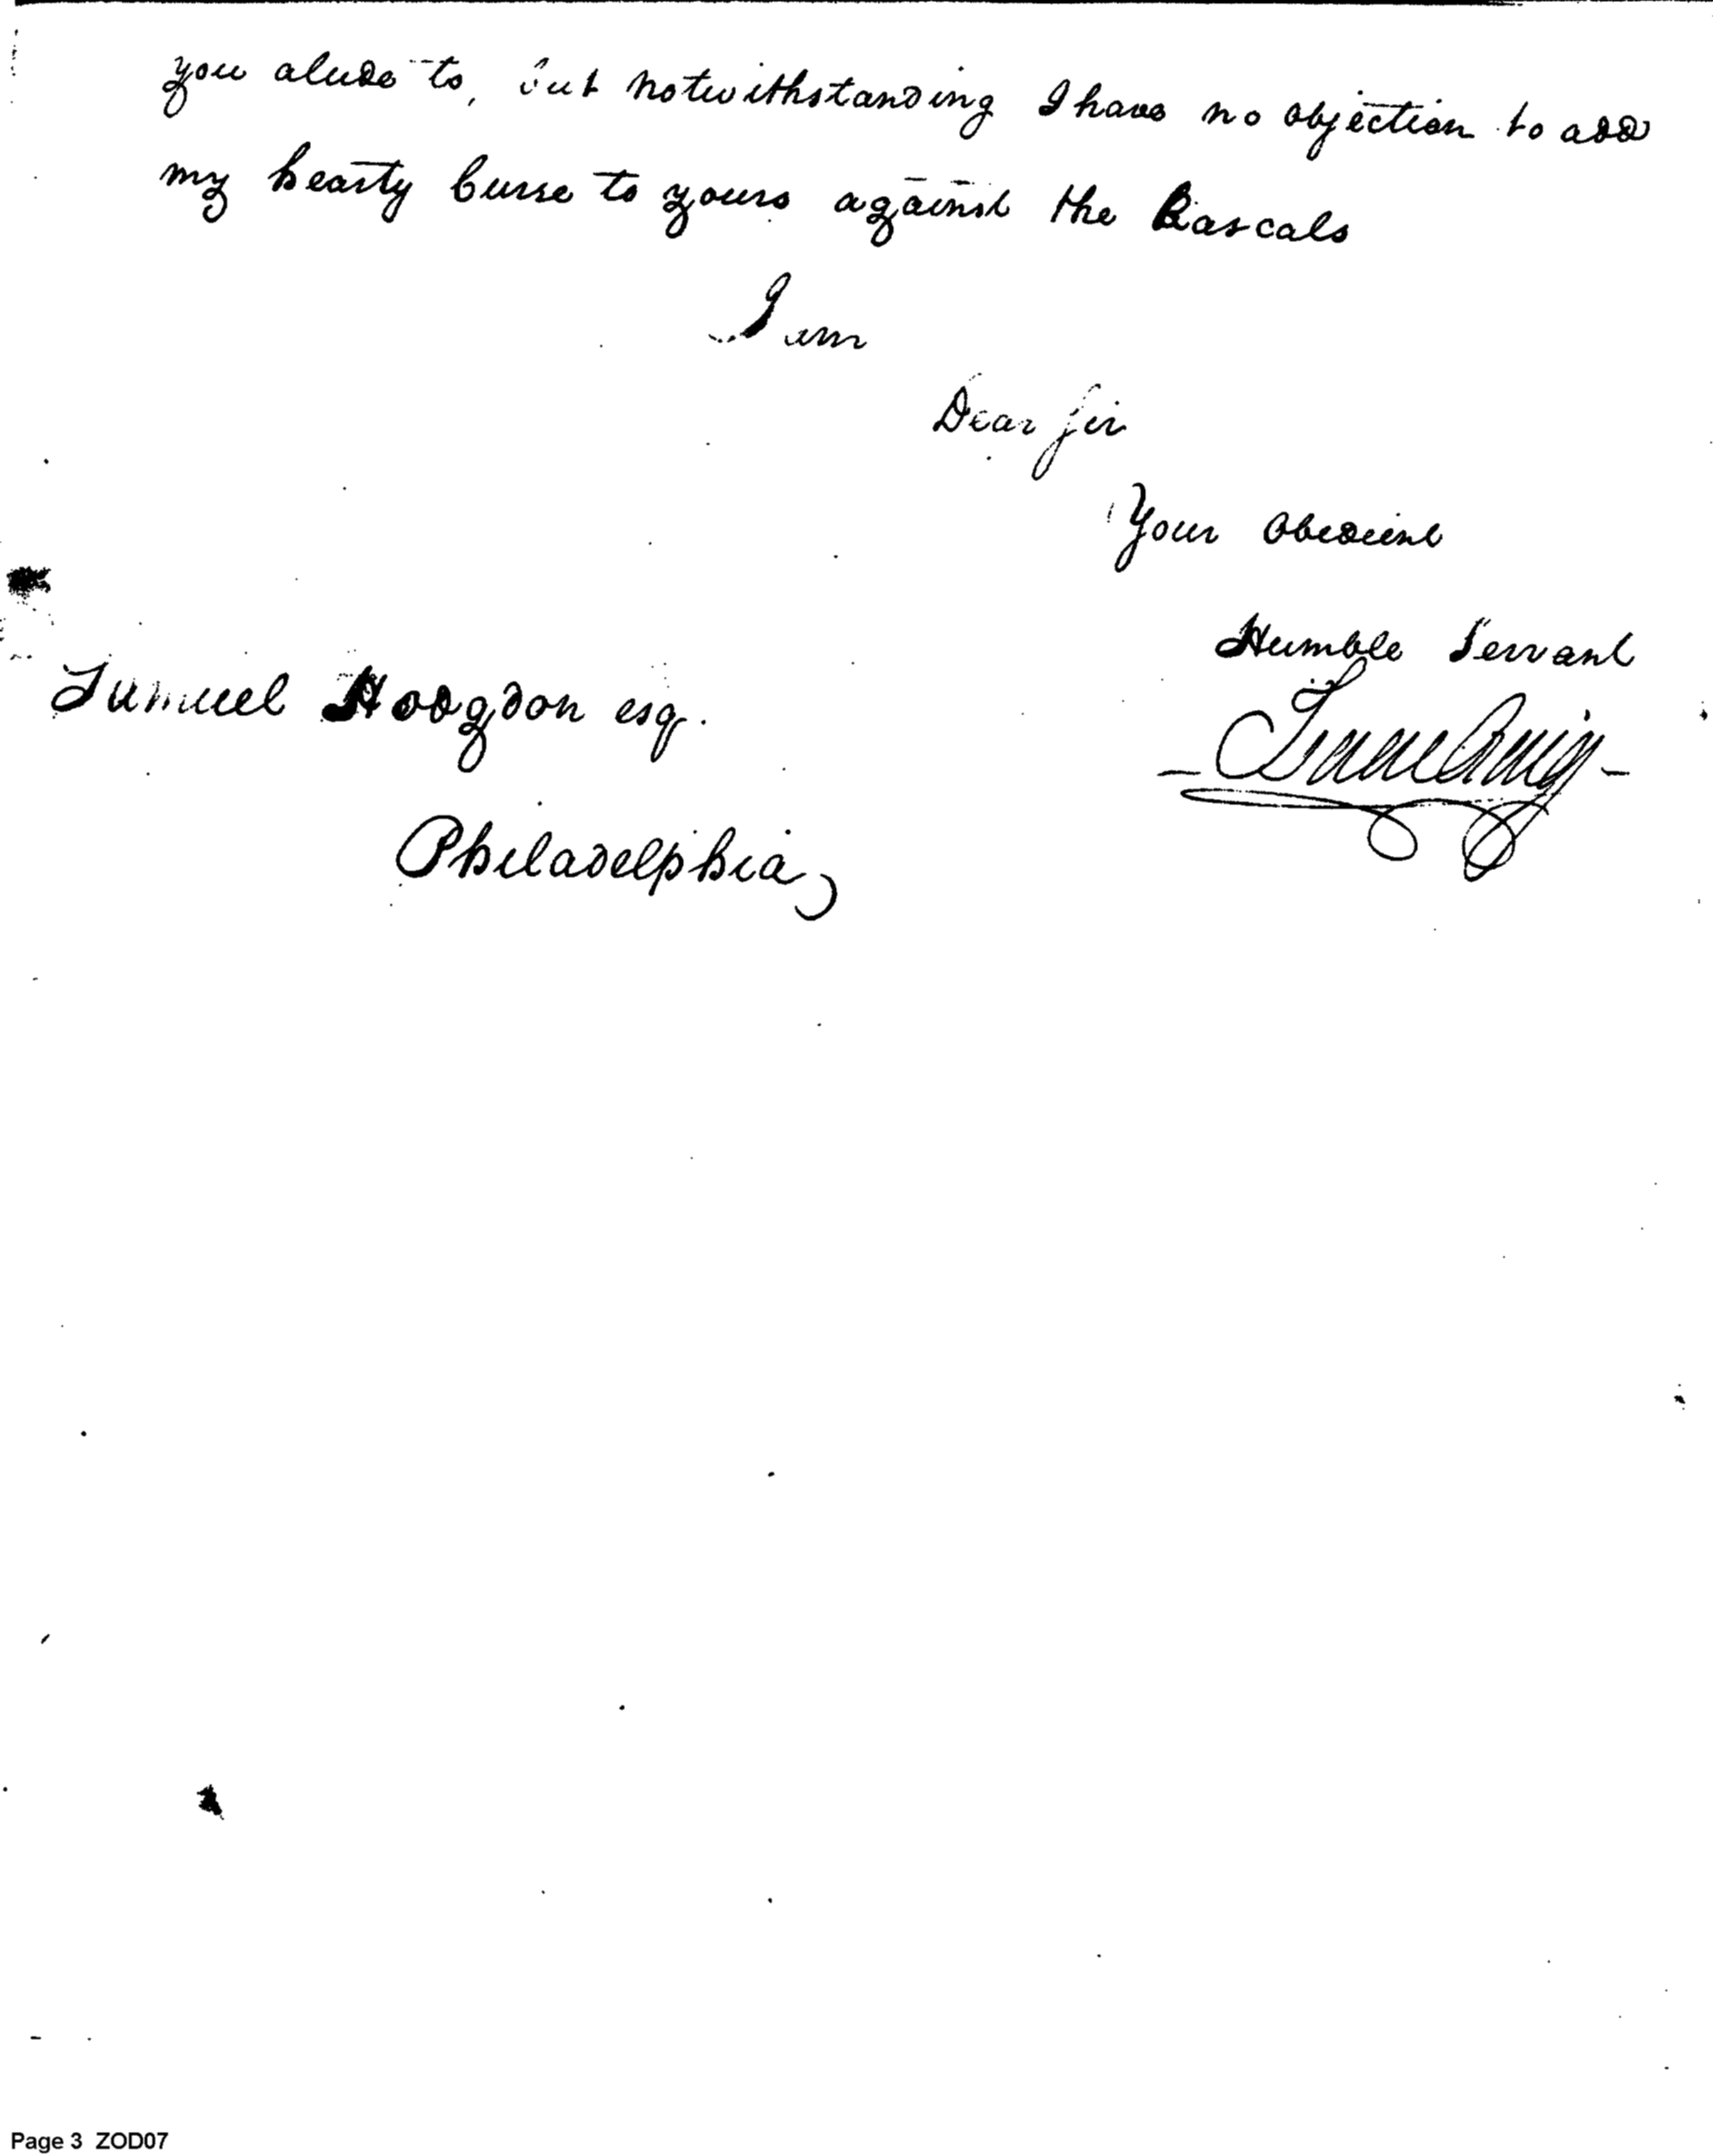 you alude to, but notwithstanding I have no objection to add
my hearty Curse to yours against the Rascals
I am
Dear Sir
Your obedient
Humble Servant
Samuel Hodgdon esq.
Isaac Craig
Philadelphia
Page 3 ZOD07